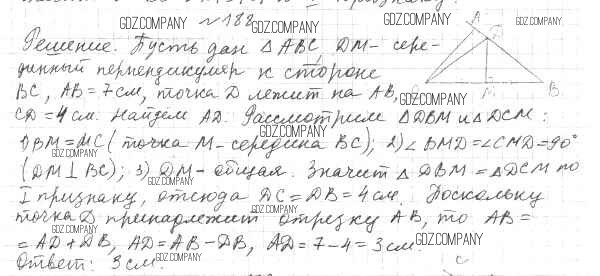 № 188
Решение. Пусть дан △ABC, DM - сере-
динный перпендикуляр к стороне
BC, AB = 7 см, точка D лежит на AB,
CD = 4 см. Найдём AD. Рассмотрим △DBM и △DCM:
1) BM = MC (точка M - середина BC); 2) ∠BMD = ∠CMD = 90°
(DM ⊥ BC); 3) DM - общая. Значит △DBM = △DCM по
I признаку, отсюда DC = DB = 4 см. Поскольку
точка D принадлежит отрезку AB, то AB =
= AD + DB, AD = AB - DB, AD = 7 - 4 = 3 см.
Ответ: 3 см.
A
D
C
M
B
GDZ.COMPANY
GDZ.COMPANY
GDZ.COMPANY
GDZ.COMPANY
GDZ.COMPANY
GDZ.COMPANY
GDZ.COMPANY
GDZ.COMPANY
GDZ.COMPANY
GDZ.COMPANY
GDZ.COMPANY
GDZ.COMPANY
GDZ.COMPANY